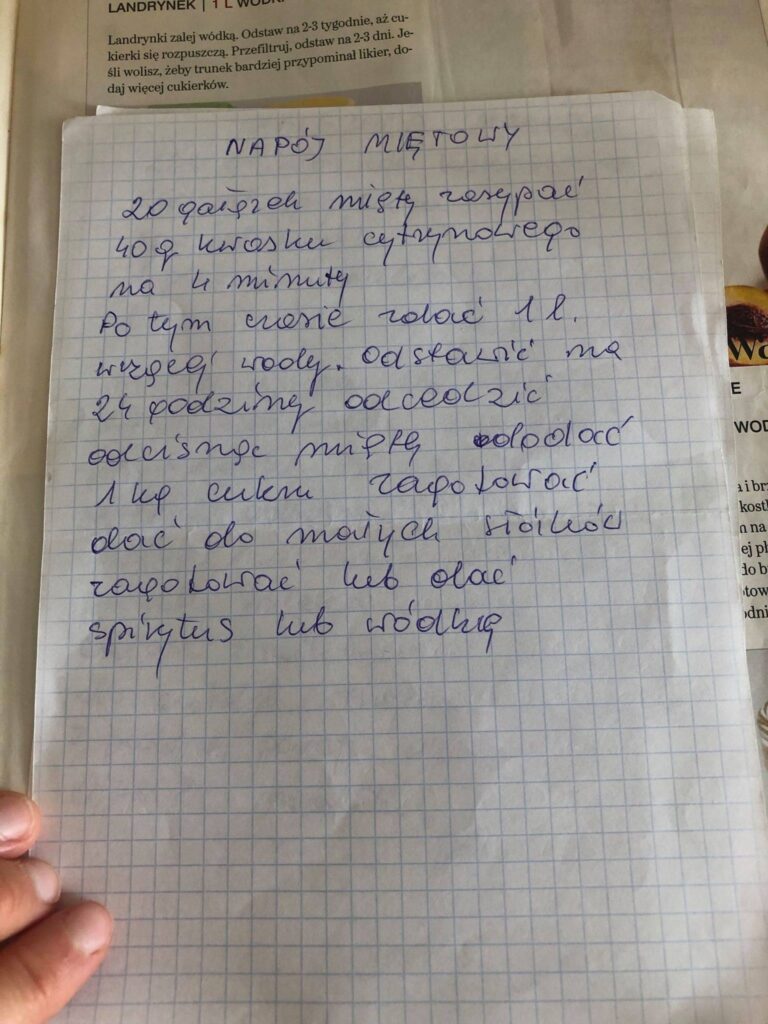 LANDRYNEK | 1 L WÓDK
Landrynki zalej wódką. Odstaw na 2-3 tygodnie, aż cu-
kierki się rozpuszczą. Przefiltruj, odstaw na 2-3 dni. Je-
śli wolisz, żeby trunek bardziej przypominał likier, do-
daj więcej cukierków.
NAPÓJ MIĘTOWY
20 gałązek mięty zasypać
40 g kwasku cytrynowego
na 4 minuty
Po tym czasie zalać 1 l.
wrzącej wody. Odstawić na
24 godziny odcedzić
odcisnąć miętę dodać
1 kg cukru zagotować
dać do małych słoików
zagotować lub dać
spirytus lub wódkę
Wo
E
WOD
a i br
kost
m na
ej pł
do b
otow
odni